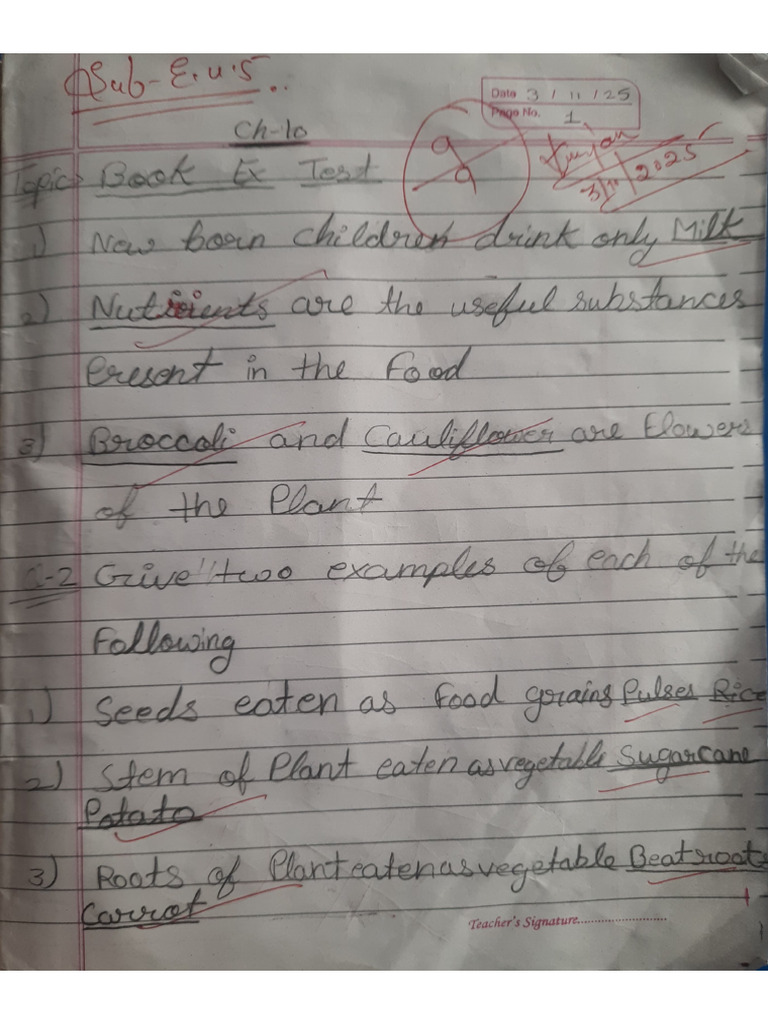 Sub- E.V.S..
Date 3 / 11 / 25
Page No. 1
Ch-10
9
9
3/11/2025
Topic Book Ex Test
1) New born children drink only Milk
2) Nutrients are the useful substances
Present in the Food
3) Broccoli and Cauliflower are flowers
of the Plant
Q-2 Give two examples of each of the
Following
1) Seeds eaten as food grains Pulses Rice
2) Stem of Plant eaten as vegetable Sugarcane
Potato
3) Roots of Plant eaten as vegetable Beatroot
Carrot
Teacher's Signature........................